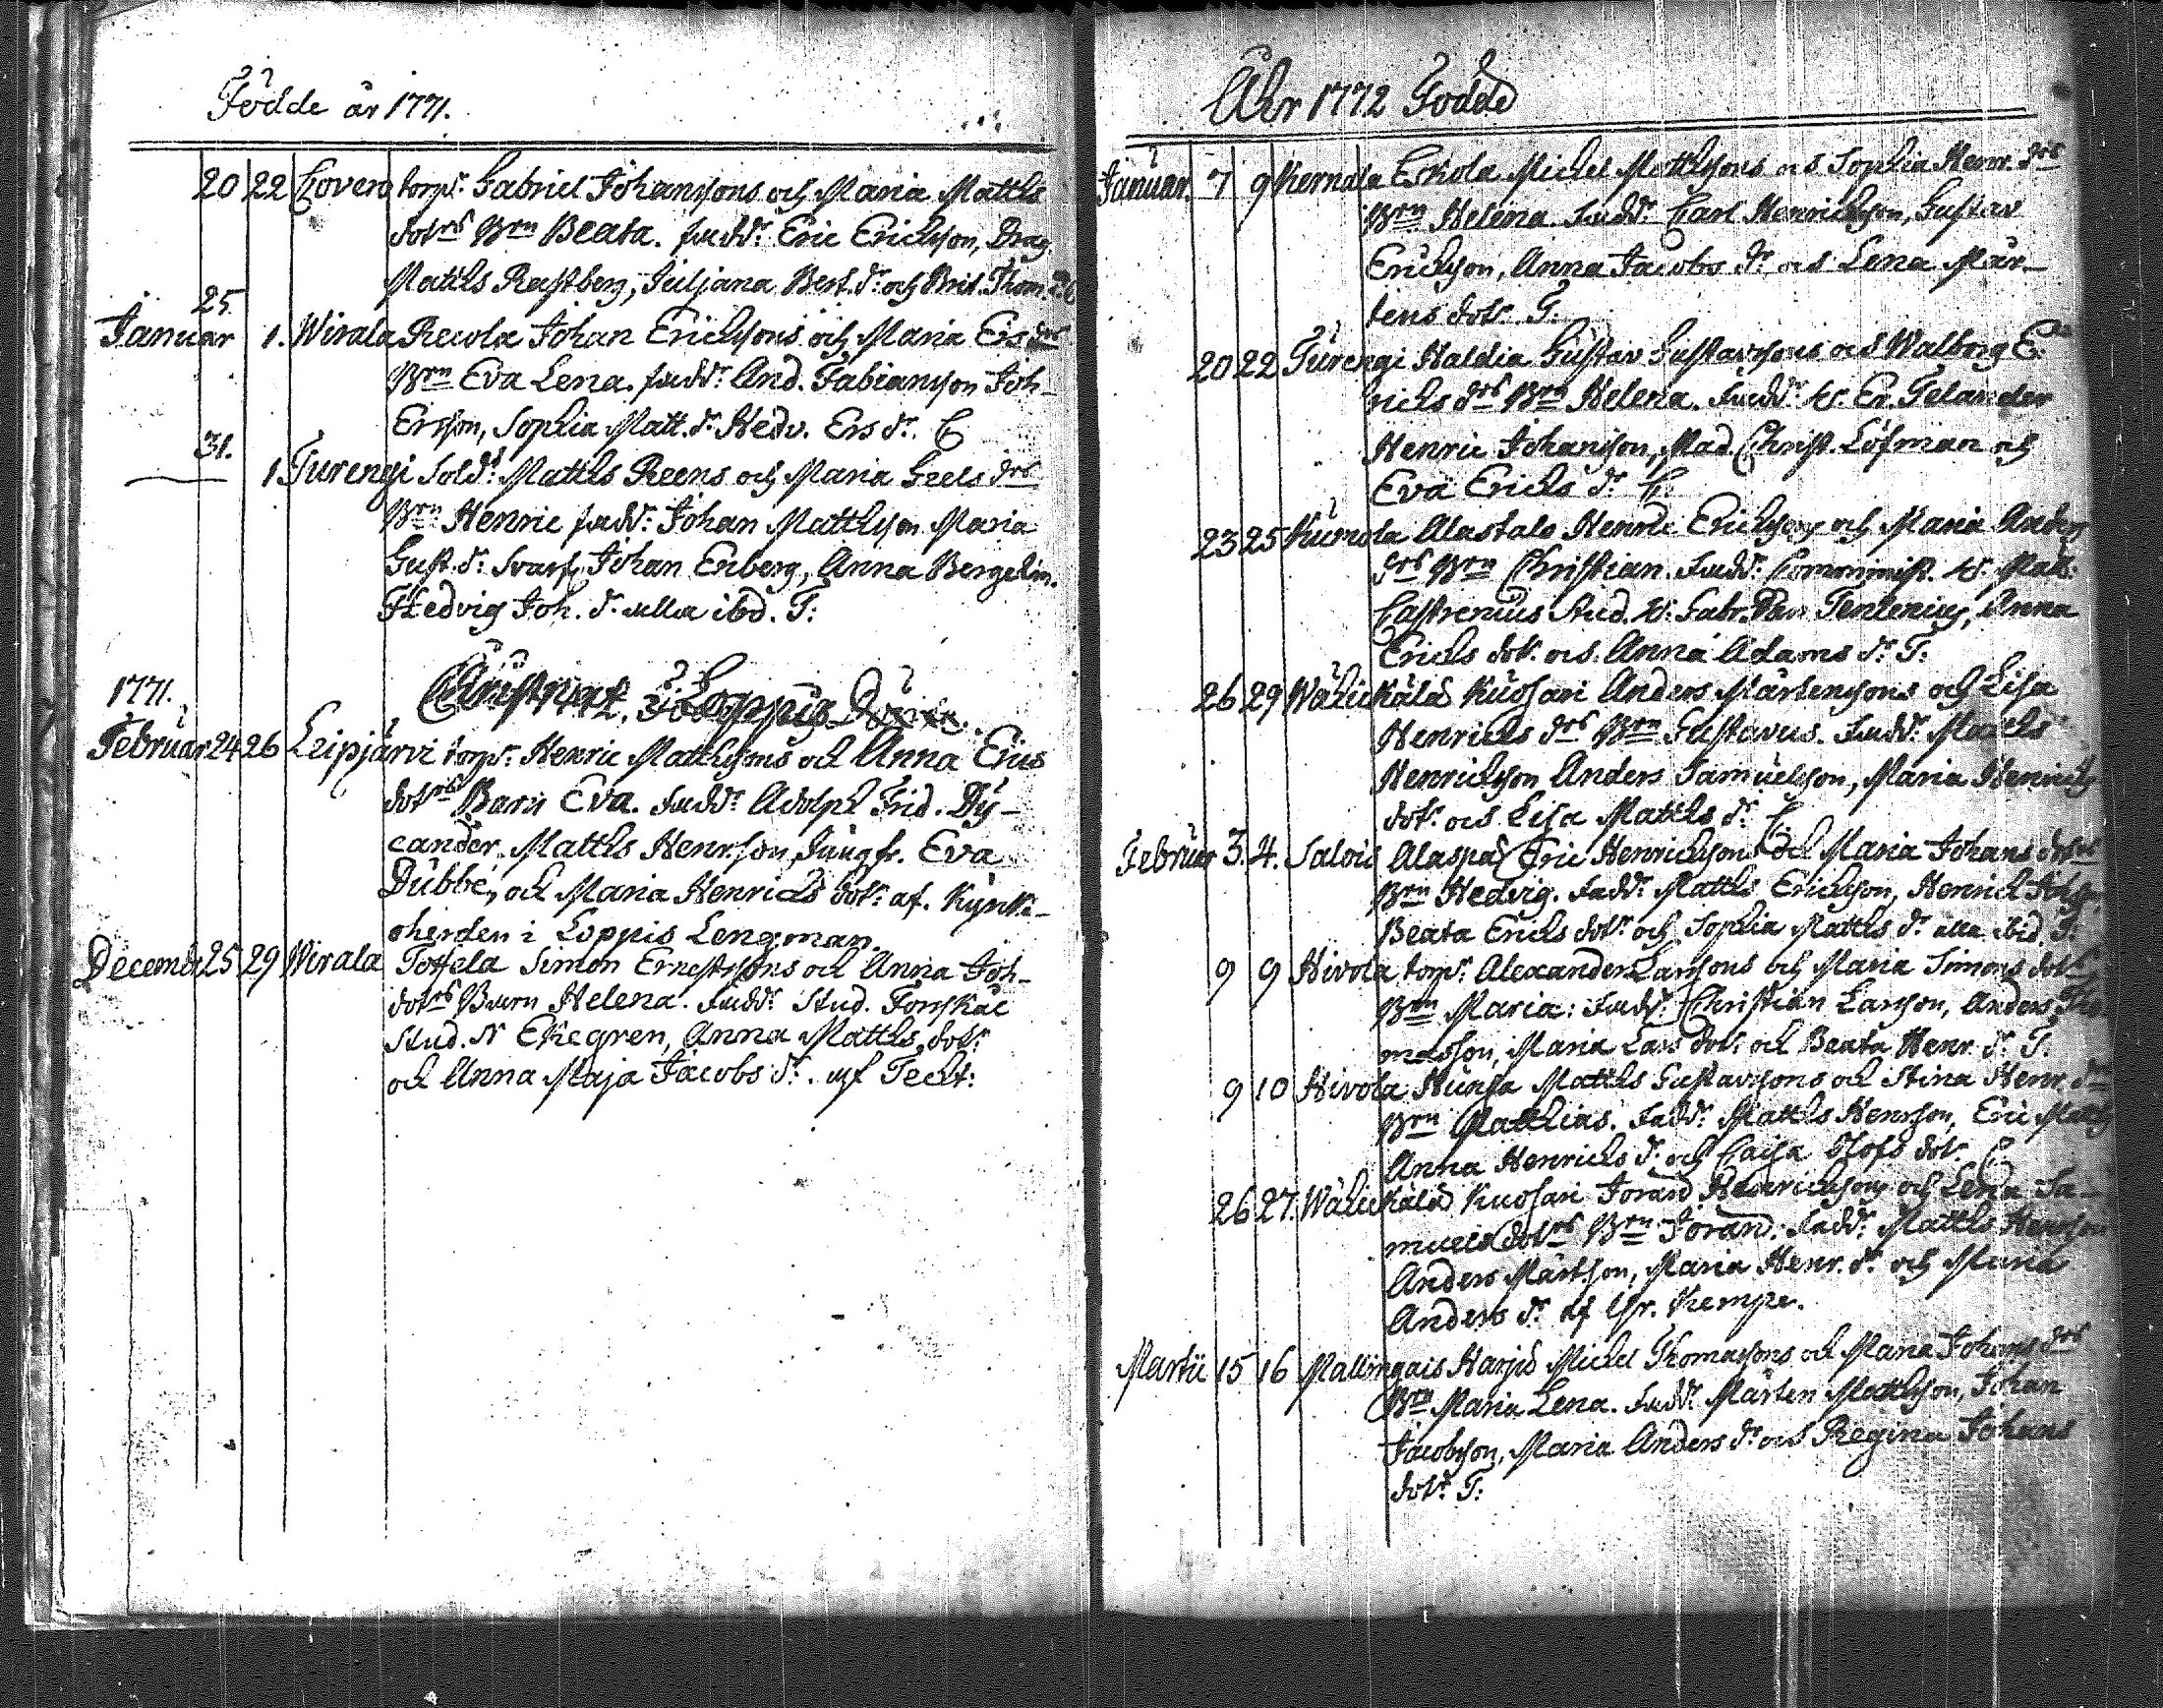 Födde år 1771.
20 22 Loven torp:r Gabriel Johanssons och Maria Matths
dot:rs B:rn Beata. fadd:r Eric Ericksson, Drag.
Matths Rastberg, Juljana Bert. d:r och Brit. Thom. d:r C
25.
Januar 1. Wirala Recola Johan Erickssons och Maria Ers d:rs
B:rn Eva Lena. fadd:r And. Fabiansson Joh-
Ersson, Sophia Matt. d:r Hedv. Ers d:r. C
31.
1 Turengi Sold:t Matths Reens och Maria Grels d:rs
B:rn Henric fadd:r Johan Matthsson Maria
Gust. d:r Svarf. Johan Enberg, Anna Bergelin.
Hedvig Joh. d:r alla ibd. T:
1771.
Loppis
Februar 24 26 Leipjärvi torp:r Henric Matthssons och Anna Erics
dot:rs Barn Eva. Fadd:r Adolph Frid. Dy-
cander, Matths Henr.sson, Jungfr. Eva
Dübbe, och Maria Henrics dot:r af. Kyrko-
herden i Loppis Lengman.
Decemb 25 29 Wirala Tottela Simon Ernestssons och Anna Joh-
dot:rs Barn Helena. Fadd:r Stud. Forskåe
Stud. N Ekegren, Anna Matths. dot:r
och Anna Maja Jacobs d:r. af Techt:
Åhr 1772 Födde
Januar. 7 9 Kernala Eskola Michel Matthssons och Sophia Henr. d:rs
B:rn Helena. Fadd:r Carl Henricksson, Gustav
Ericksson, Anna Jacobs d:r och Lena Mår-
tens dot:r T:
20 22 Turengi Haldia Gustav Gustavssons och Walborg E:
ricks d:rs B:rn Helena. Fadd:r H:r Er. Telander
Henric Johansson, Mad. Christ. Löfman och
Eva Ericks d:r C:
23 25 Kumola Alastalo Henric Ericssons och Maria Anders
d:rs B:rn Christian. Fadd:r Comminist. H:r Matt:
Castrenius Stud. H: Gabr. Tenlenius, Anna
Ericks dot:r och Anna Adams d:r T:
26 29 Wähickälä Kuosari Anders Mårtenssons och Lisa
Henricks d:rs B:rn Gustavus. Fadd:r Matths
Henricksson Anders Samuelsson, Maria Henricks
dot:r och Lisa Matths d:r C
Februar 3. 4. Salois Alaspää Eric Henrickssons och Maria Johans dot:rs
B:rn Hedvig. Fadd:r Matths Ericksson, Henrich Johss.
Beata Ericks dot:r och Sophia Matths d:r alla ibid. T:
9 9 Hivola torp:r Alexander Larssons och Maria Simons dot:rs
B:rn Maria: Fadd:r Christian Larsson, Anders Tho
masson, Maria Lars dot:r och Beata Henr. d:r T.
9 10 Hivola Hunsa Matths Gustavssons och Stina Henr. d:rs
B:rn Matthias. Fadd:r Matths Henrsson, Eric Matths
Anna Henricks d:r och Caisa Olofs dot:r C
26 27. Wähickälä Kuosari Joran Henrickssons och Lena Sa-
muels dot:rs B:rn Joran. Fadd:r Matths Henrsson
Anders Mårtsson, Maria Henr. d:r och Maria
Anders d:r af Hr. Kempe.
Martii 15 16 Mallingais Harju Michel Thomassons och Maria Johans d:rs
B:rn Maria Lena. Fadd:r Mårten Matthsson, Johan
Jacobsson, Maria Anders d:r och Regina Johans
dot:r T: